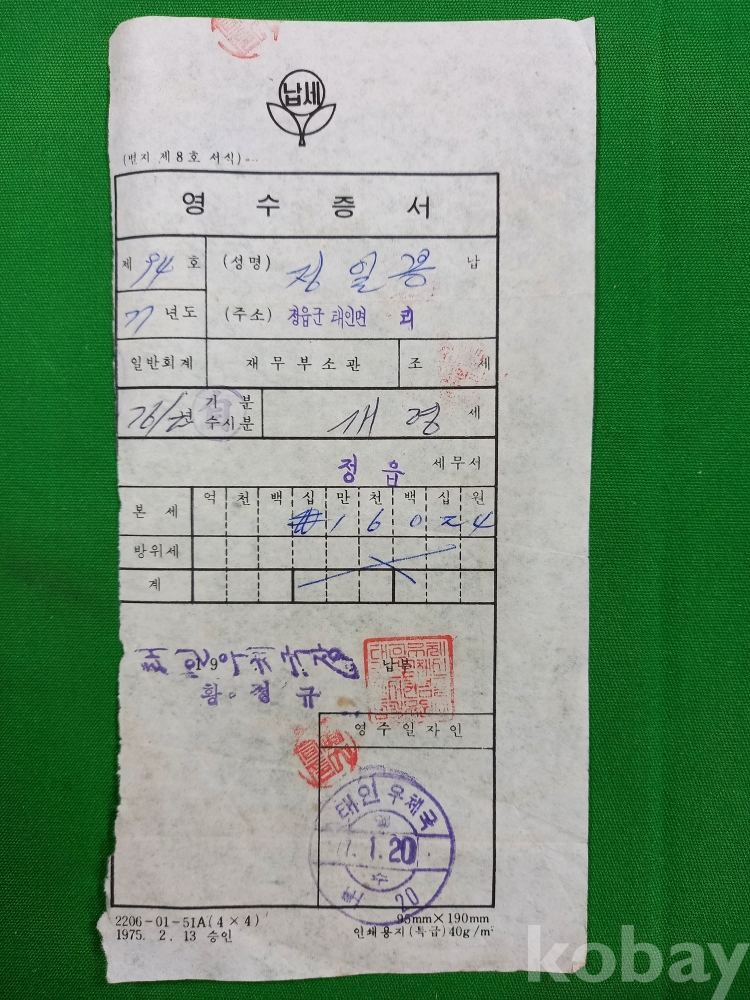 납세
(별지 제 8 호 서식)
영 수 증 서
제 94 호 (성명) 정 일 용 납
77 년도 (주소) 정읍군 태인면 리
일반회계 재 무 부 소 관 조 세
76/ 기 분
수시분
세
정 읍 세무서
억 천 백 십 만 천 백 십 원
본 세 ₩ 1 6 0 2 4
방위세
계
19 납부
태인우체국장
황 정 규
영 수 일 자 인
태인우체국
1.20
20
2206-01-51A(4×4) 95mm×190mm
1975. 2. 13 승인 인쇄용지(특급)40g/m²
kobay